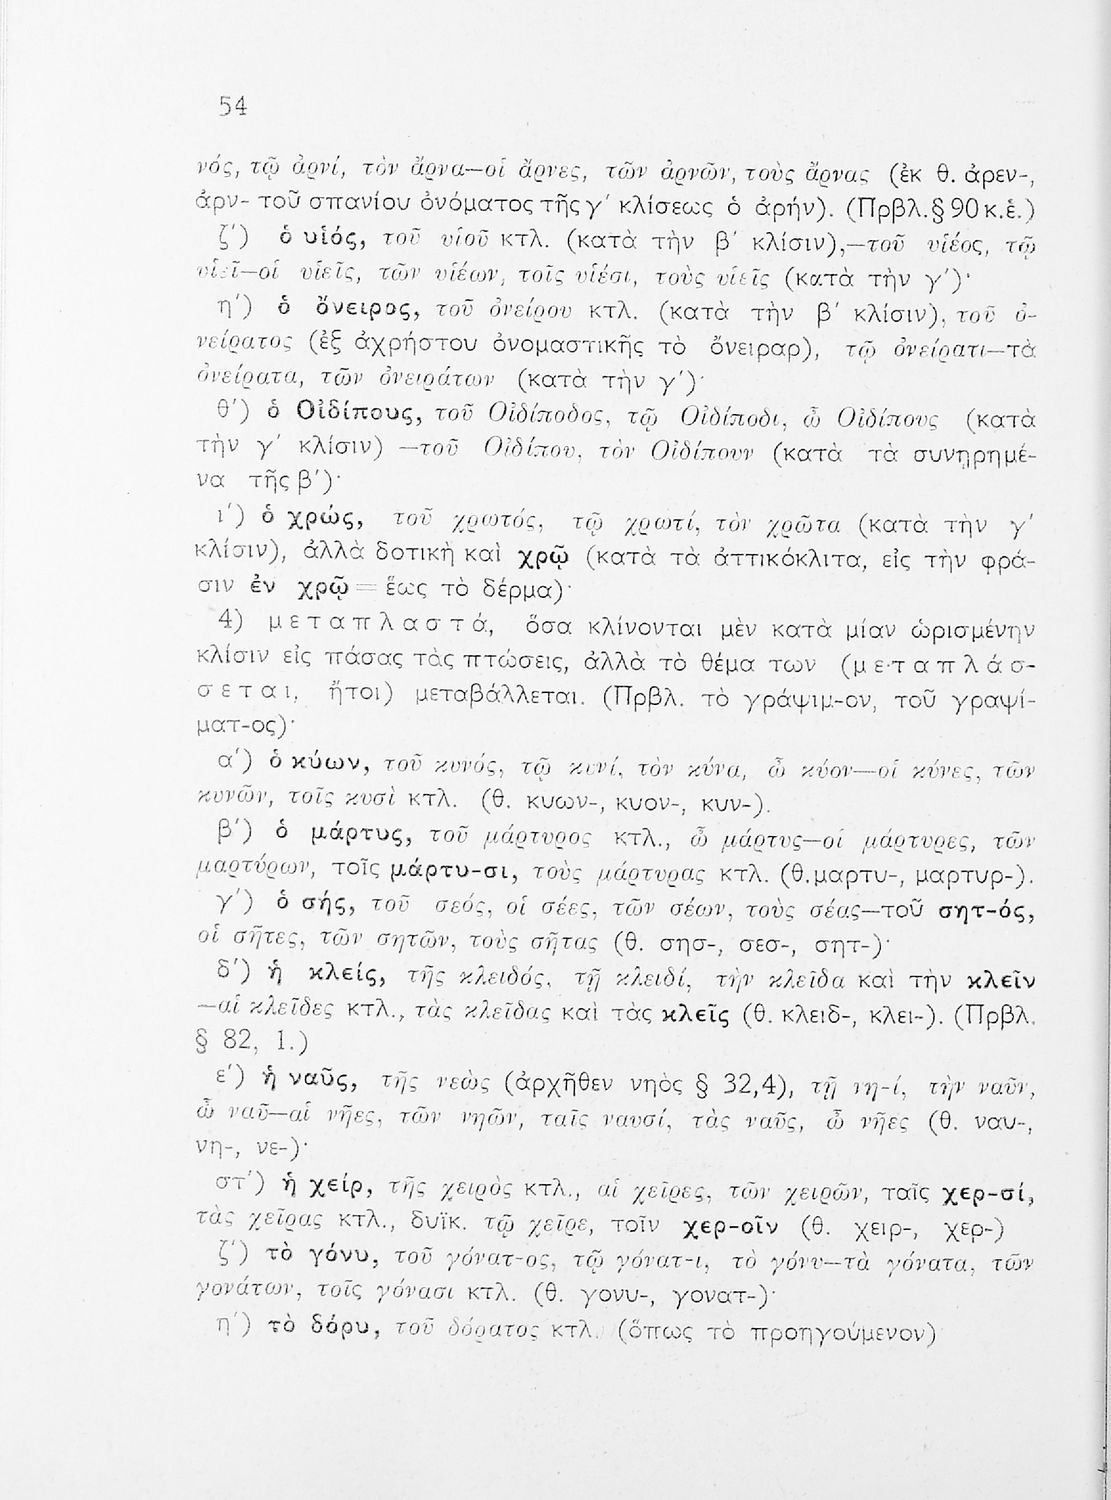 54
νός, τῷ ἀρνί, τὸν ἄρνα—οἱ ἄρνες, τῶν ἀρνῶν, τοὺς ἄρνας (ἐκ θ. ἀρεν-,
ἀρν- τοῦ σπανίου ὀνόματος τῆς γ΄ κλίσεως ὁ ἀρήν). (Πρβλ. § 90 κ.ἑ.)
ζ΄) ὁ υἱός, τοῦ υἱοῦ κτλ. (κατὰ τὴν β΄ κλίσιν),—τοῦ υἱέος, τῷ
υἱεῖ—οἱ υἱεῖς, τῶν υἱέων, τοῖς υἱέσι, τοὺς υἱεῖς (κατὰ τὴν γ΄)·
η΄) ὁ ὄνειρος, τοῦ ὀνείρου κτλ. (κατὰ τὴν β΄ κλίσιν), τοῦ ὀ-
νείρατος (ἐξ ἀχρήστου ὀνομαστικῆς τὸ ὄνειραρ), τῷ ὀνείρατι—τὰ
ὀνείρατα, τῶν ὀνειράτων (κατὰ τὴν γ΄)·
θ΄) ὁ Οἰδίπους, τοῦ Οἰδίποδος, τῷ Οἰδίποδι, ὦ Οἰδίπους (κατὰ
τὴν γ΄ κλίσιν) —τοῦ Οἰδίπου, τὸν Οἰδίπουν (κατὰ τὰ συνῃρημέ-
να τῆς β΄)·
ι΄) ὁ χρώς, τοῦ χρωτός, τῷ χρωτί, τὸν χρῶτα (κατὰ τὴν γ΄
κλίσιν), ἀλλὰ δοτικὴ καὶ χρῷ (κατὰ τὰ ἀττικόκλιτα, εἰς τὴν φρά-
σιν ἐν χρῷ = ἕως τὸ δέρμα)·
4) μεταπλαστά, ὅσα κλίνονται μὲν κατὰ μίαν ὡρισμένην
κλίσιν εἰς πάσας τὰς πτώσεις, ἀλλὰ τὸ θέμα των (μεταπλάσ-
σεται, ἤτοι) μεταβάλλεται. (Πρβλ. τὸ γράψιμ-ον, τοῦ γραψί-
ματ-ος)·
α΄) ὁ κύων, τοῦ κυνός, τῷ κυνί, τὸν κύνα, ὦ κύον—οἱ κύνες, τῶν
κυνῶν, τοῖς κυσὶ κτλ. (θ. κυων-, κυον-, κυν-).
β΄) ὁ μάρτυς, τοῦ μάρτυρος κτλ., ὦ μάρτυς—οἱ μάρτυρες, τῶν
μαρτύρων, τοῖς μάρτυ-σι, τοὺς μάρτυρας κτλ. (θ. μαρτυ-, μαρτυρ-).
γ΄) ὁ σής, τοῦ σεός, οἱ σέες, τῶν σέων, τοὺς σέας—τοῦ σητ-ός,
οἱ σῆτες, τῶν σητῶν, τοὺς σῆτας (θ. σησ-, σεσ-, σητ-)·
δ΄) ἡ κλείς, τῆς κλειδός, τῇ κλειδί, τὴν κλεῖδα καὶ τὴν κλεῖν
—αἱ κλεῖδες κτλ., τὰς κλεῖδας καὶ τὰς κλεῖς (θ. κλειδ-, κλει-). (Πρβλ.
§ 82, 1.)
ε΄) ἡ ναῦς, τῆς νεὼς (ἀρχῆθεν νηὸς § 32,4), τῇ νη-ί, τὴν ναῦν,
ὦ ναῦ—αἱ νῆες, τῶν νηῶν, ταῖς ναυσί, τὰς ναῦς, ὦ νῆες (θ. ναυ-,
νη-, νε-)·
στ΄) ἡ χείρ, τῆς χειρὸς κτλ., αἱ χεῖρες, τῶν χειρῶν, ταῖς χερ-σί,
τὰς χεῖρας κτλ., δυϊκ. τῷ χεῖρε, τοῖν χερ-οῖν (θ. χειρ-, χερ-)
ζ΄) τὸ γόνυ, τοῦ γόνατ-ος, τῷ γόνατ-ι, τὸ γόνυ—τὰ γόνατα, τῶν
γονάτων, τοῖς γόνασι κτλ. (θ. γονυ-, γονατ-)·
η΄) τὸ δόρυ, τοῦ δόρατος κτλ. (ὅπως τὸ προηγούμενον)